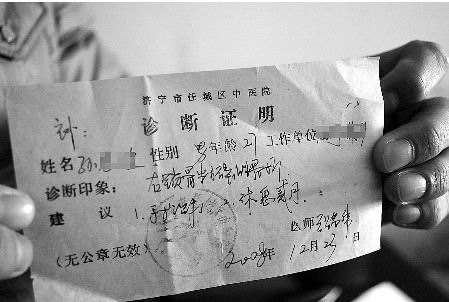 济宁市任城区中医院
诊断证明
姓名 孙 性别 男 年龄 27 工作单位
诊断印象: 左锁骨
建 议 1. 手术治疗 2. 休息贰月
医师
(无公章无效) 2008年12月23日